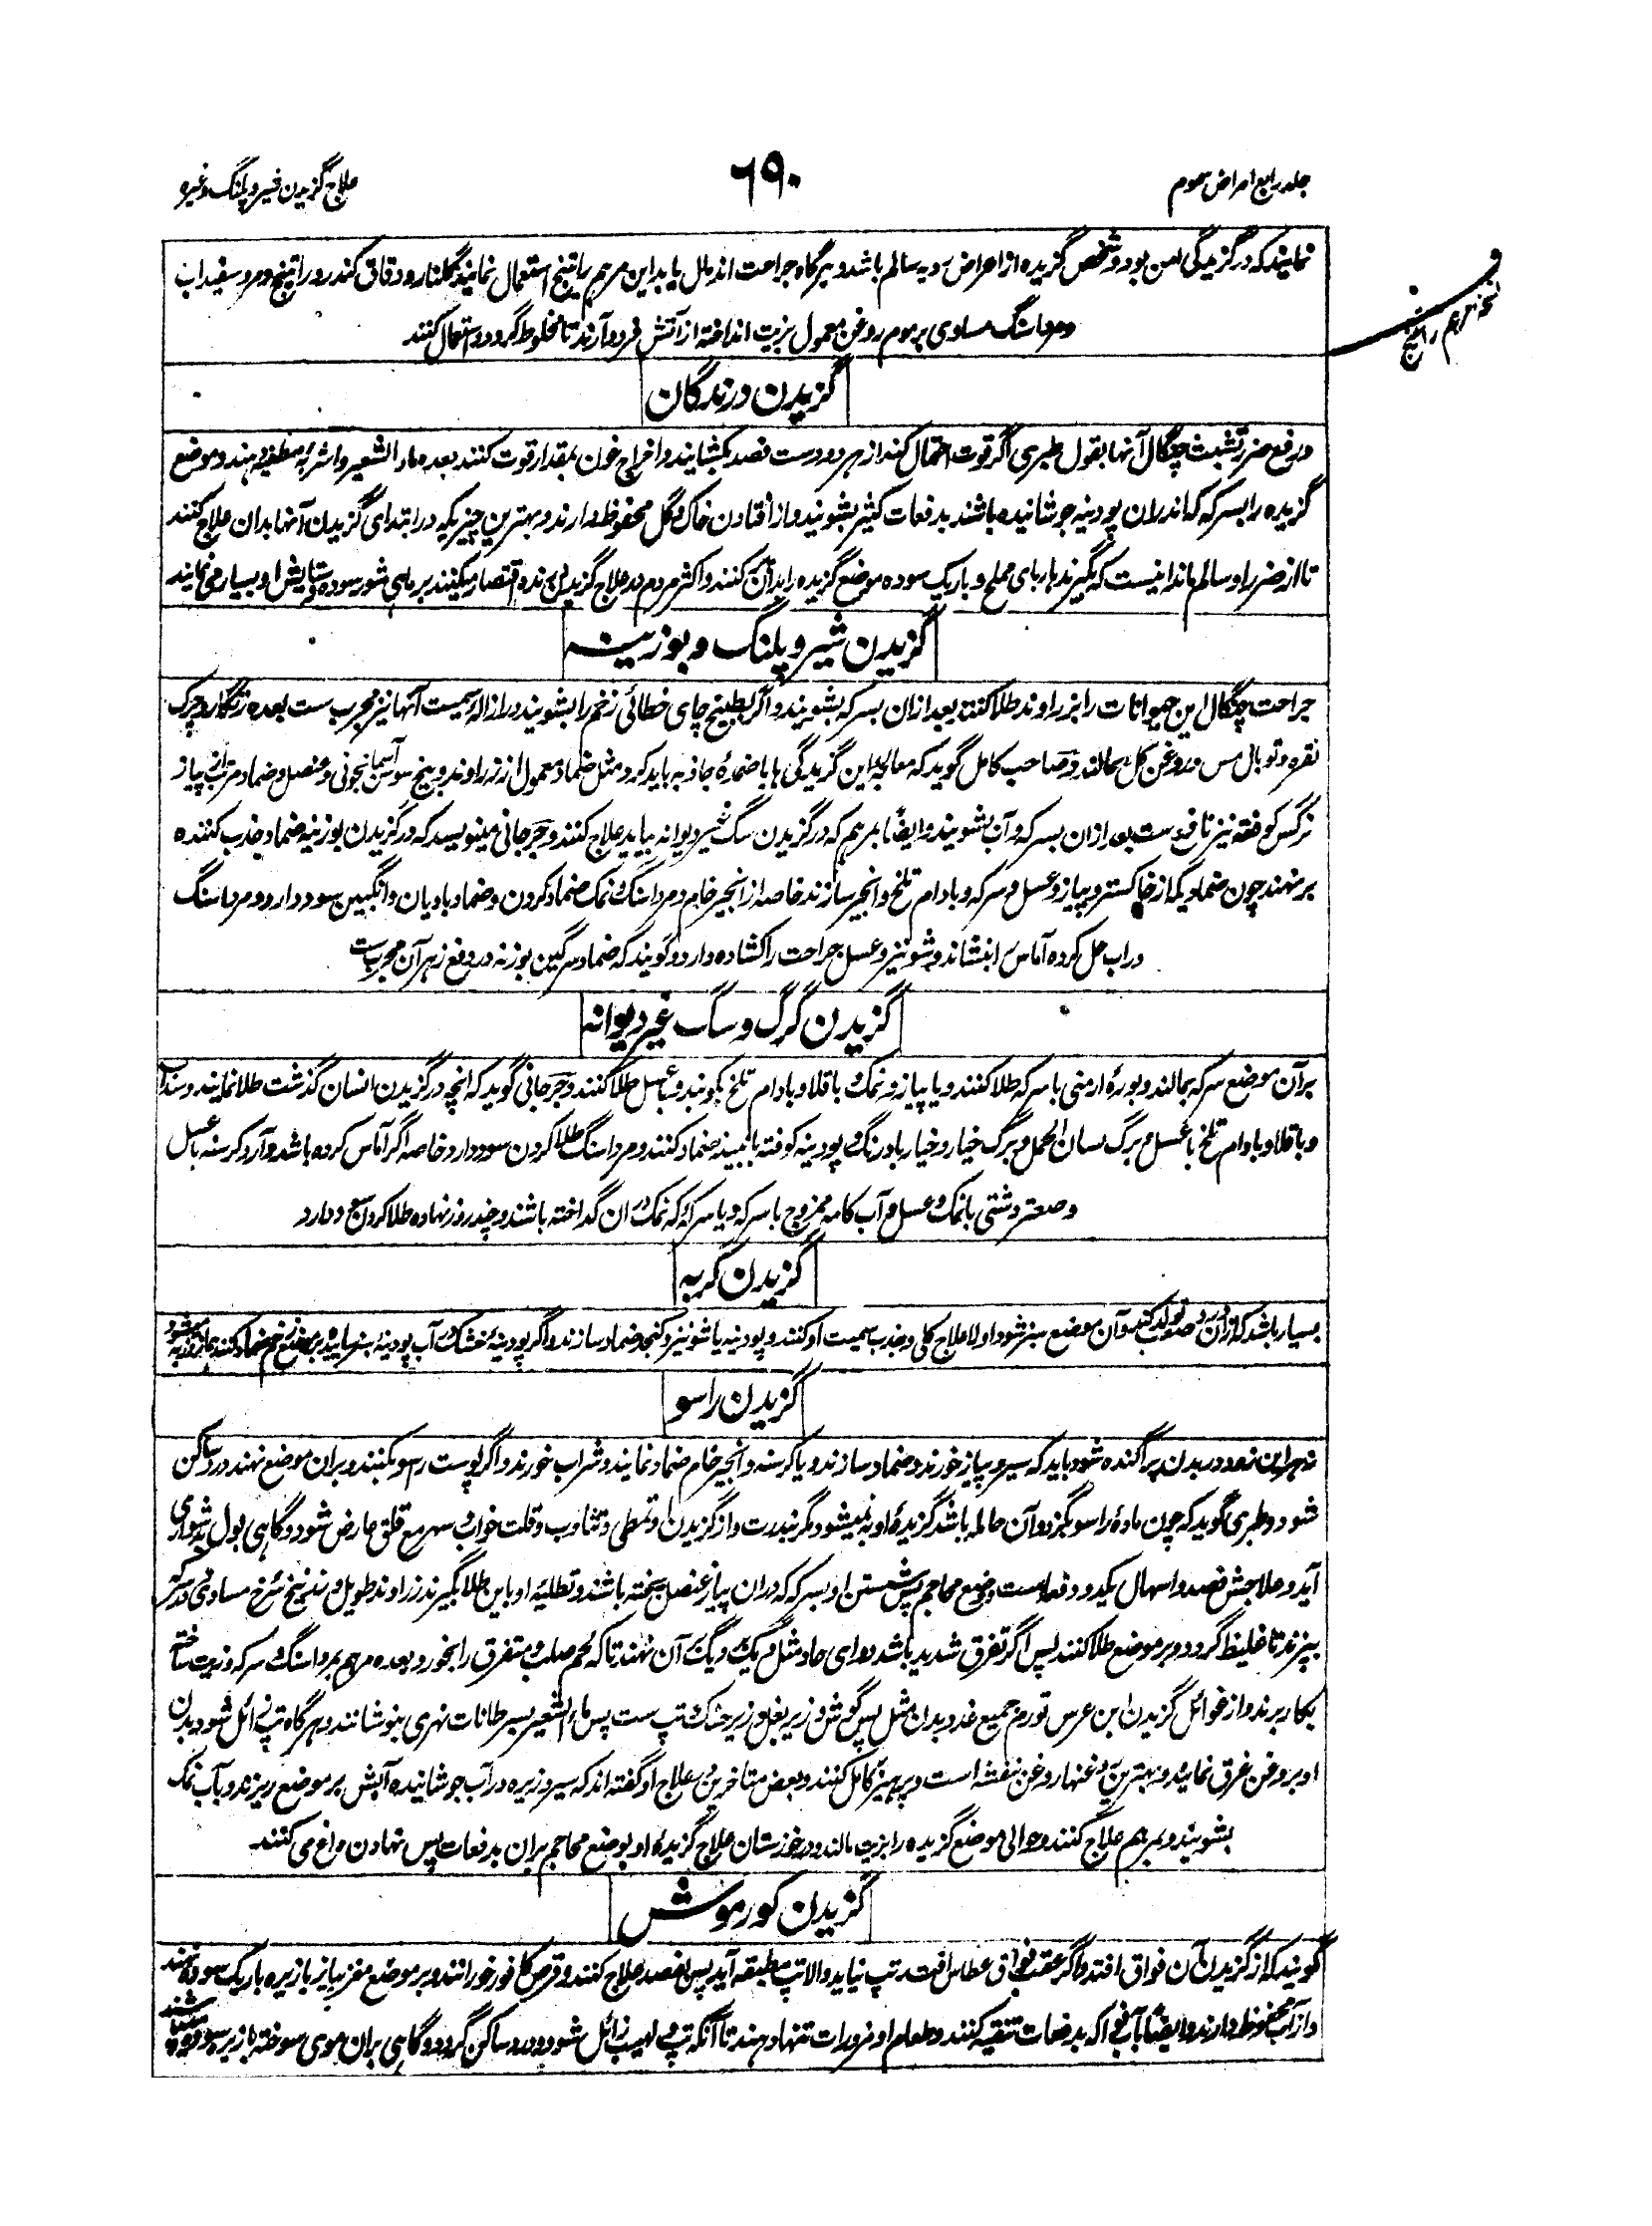 جلد رابع امراض سموم
۶۹۰
علاج گزیدن شیر و پلنگ وغیره
نمایند که در گزیدگی امن بود و شخص گزیده از اعراض ردیه سالم باشد و هرگاه جراحت اندمال یابد این مرهم راتینج استعمال نمایند گلنار و دقاق کندر و راتینج و مر و سفیداب
و مرداسنگ مساوی بر موم روغن معمول بزیت انداخته از آتش فرود آرند تا مخلوط گردد و استعمال کنند
نسخه مرهم راتینج
گزیدن درندگان
در رفع ضرر تشبث چنگال آنها بقول طبری اگر قوت احتمال کند از هر دو دست فصد بکشایند و اخراج خون بمقدار قوت کنند بعده ماء الشعیر و اشربه مطفیه دهند و موضع
گزیده را بسرکه که اندران پودینه جوشانیده باشند بدفعات کثیر بشویند و از افتادن خاک و گل محفوظ دارند و بهترین چیزیکه در ابتدای گزیدن آنها بدان علاج کنند
تا از ضرر او سالم ماند اینست که بگیرند مار بای مملح و باریک سوده موضع گزیده را بدان کنند و اکثر مردم در علاج گزیدن درنده اقتصار میکنند بر ماهی شور سوده و ستایش او بسیار می نمایند
گزیدن شیر و پلنگ و بوزینه
جراحت چنگال این حیوانات را بزراوند طلا کنند بعد ازان بسرکه بشویند و اگر بطبیخ چای خطائی زخم را بشویند در ازاله سمیت آنها نیز مجرب ست بعده زنگار و چرک
نقره و توبال مس و روغن گل بمالند و صاحب کامل گوید که معالجه این گزیدگی ها باضمدهٔ جاذبه باید کرد مثل ضماد معمول از زراوند و بیخ سوسن آسمانجونی و عنصل و ضماد مرتب از پیاز
نرگس کوفته نیز نافع ست بعد ازان بسرکه و آب بشویند و ایضاً بمرهم که در گزیدن سگ غیر دیوانه بیاید علاج کنند و جرجانی مینویسد که در گزیدن بوزینه ضماد جذب کننده
بر نهند چون ضمادیکه از خاکستر و پیاز و عسل و سرکه و بادام تلخ و انجیر سازند خاصه از انجیر خام و مرداسنگ و نمک ضماد کردن و ضماد بادیان و انگبین سود دارد و مرداسنگ
در آب حل کرده آماس را بنشاند و شونیز و عسل جراحت را کشاده دارد و گویند که ضماد سرگین بوزنه در دفع زهر آن مجرب ست
گزیدن گرگ و سگ غیر دیوانه
بر آن موضع سرکه بمالند و بورهٔ ارمنی با سرکه طلا کنند و یا پیاز و نمک و باقلا و بادام تلخ بکوبند و بعسل طلا کنند و جرجانی گوید که انچه در گزیدن انسان گذشت طلا نمایند و سداب
و باقلا و بادام تلخ با عسل و برگ لسان الحمل و برگ خیار و خیار بادرنگ و پودینه کوفته با بنیذ ضماد کنند و مرداسنگ طلا کردن سود دارد خاصه اگر آماس کرده باشد و آرد کرسنه با عسل
و صعتر دشتی با نمک و عسل و آب کامه ممزوج با سرکه و یا سرکه که نمک دران گداخته باشند و چند روز نهاده طلا کردن سود دارد
گزیدن گربه
بسیار باشد که دران درد صعب تولد کند و آن موضع سبز شود اولا علاج کلی و جذب سمیت او کنند و پودینه یا شونیز و کنجد ضماد سازند و اگر پودینه خشک در آب پودینه سبز سائیده بر موضع زخم ضماد کنند
گزیدن راسو
زهر این زود در بدن پراگنده شود باید که سیر و پیاز خورند و ضماد سازند و یا کرسنه و انجیر خام ضماد نمایند و شراب خورند و اگر پوست راسو بکنند و بران موضع نهند درد ساکن
شود و طبری گوید که چون مادهٔ راسو بگزد و آن حامله باشد گزیدهٔ او به نمیشود مگر بندرت و از گزیدن او تمطی و تثاوب و قلت خواب و سهر مع قلق عارض شود و گاهی بول بدشواری
آید و علاجش فصد و اسهال یکدو دفعه است و وضع محاجم پس شستن او بسرکه که دران پیاز عنصل پخته باشند و تطلیه او باین طلا بگیرند زراوند طویل و زرنیخ سرخ مساوی و در سرکه
بپزند تا غلیظ گردد و بر موضع طلا کنند پس اگر تفرق شدید باشد دوای حاد مثل دیگ بر دیگ بر آن نهند تا که لحم صلب و متفرق را بخورد بعده مرهم بمرداسنگ و سرکه و زیت ساخته
بکار برند و از غوائل گزیدن ابن عرس تورم جمیع غدد بدن مثل پس گوش و زیر بغل و زیر حنک و تپ ست پس ماء الشعیر بسرطانات نهری بنوشانند و هرگاه تپ زائل شود بدن
او بروغن غرق نمایند و بهترین روغنها روغن بنفشه است و پرهیز کامل کنند و بعض متاخرین در علاج او گفته اند که سیر و زیره در آب جوشانیده آبش بر موضع ریزند و بآب نمک
بشویند و بمرهم علاج کنند و حوالی موضع گزیده را بزیت مالند و در خوزستان علاج گزیدهٔ او بوضع محاجم بران بدفعات پس نهادن داغ می کنند
گزیدن کورموش
گویند که از گزیدن آن فواق افتد و اگر عقب فواق عطاس افتد تپ نیاید و الا تپ مطبقه آید پس بفصد علاج کنند و قرص کافور خورانند و بر موضع مغز پیاز با زیره باریک سوده نهند
و از آب محفوظ دارند و ایضاً بآب فواکه بدفعات تنقیه کنند و طعام او مزورات تنها دهند تا آنکه تپ و لهیب زائل شود و درد ساکن گردد و گاهی بران موی سوخته با زیره سوده